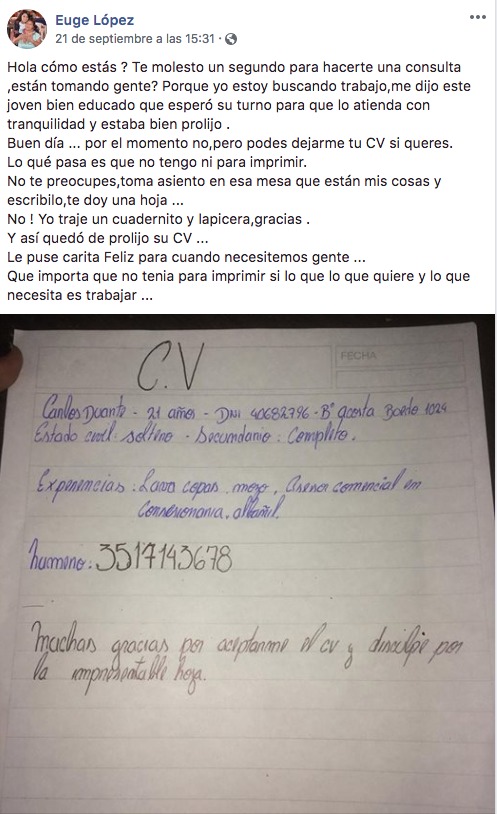 Euge López
21 de septiembre a las 15:31 ·
Hola cómo estás ? Te molesto un segundo para hacerte una consulta
,están tomando gente? Porque yo estoy buscando trabajo,me dijo este
joven bien educado que esperó su turno para que lo atienda con
tranquilidad y estaba bien prolijo .
Buen día ... por el momento no,pero podes dejarme tu CV si queres.
Lo qué pasa es que no tengo ni para imprimir.
No te preocupes,toma asiento en esa mesa que están mis cosas y
escribilo,te doy una hoja ...
No ! Yo traje un cuadernito y lapicera,gracias .
Y así quedó de prolijo su CV ...
Le puse carita Feliz para cuando necesitemos gente ...
Que importa que no tenia para imprimir si lo que lo que quiere y lo que
necesita es trabajar ...
C.V
FECHA
Carlos Duarte - 21 años - DNI 40682796 - B° acosta Boedo 1024
Estado civil: soltero - Secundario: Completo.
Experiencias: Lava copas, mozo, Asesor comercial en
Consesionaria, albañil.
humero: 3517143678
Muchas gracias por aceptarme el cv y disculpe por
la impresentable hoja.